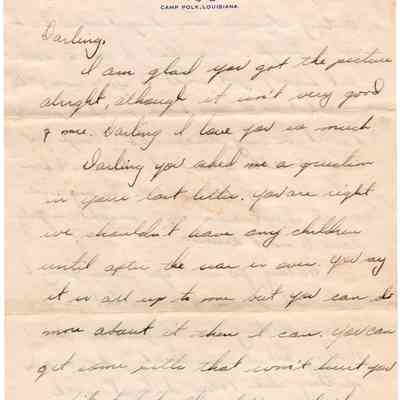 CAMP POLK, LOUISIANA
Darling,
I am glad you got the picture
alright, although it isn't very good
of me. Darling I love you so much
Darling you asked me a question
in youre last letter. You are right
we shouldn't have any children
until after the war is over. You say
it is all up to me but you can do
more about it then I can. You can
get some pills that won't hurt you